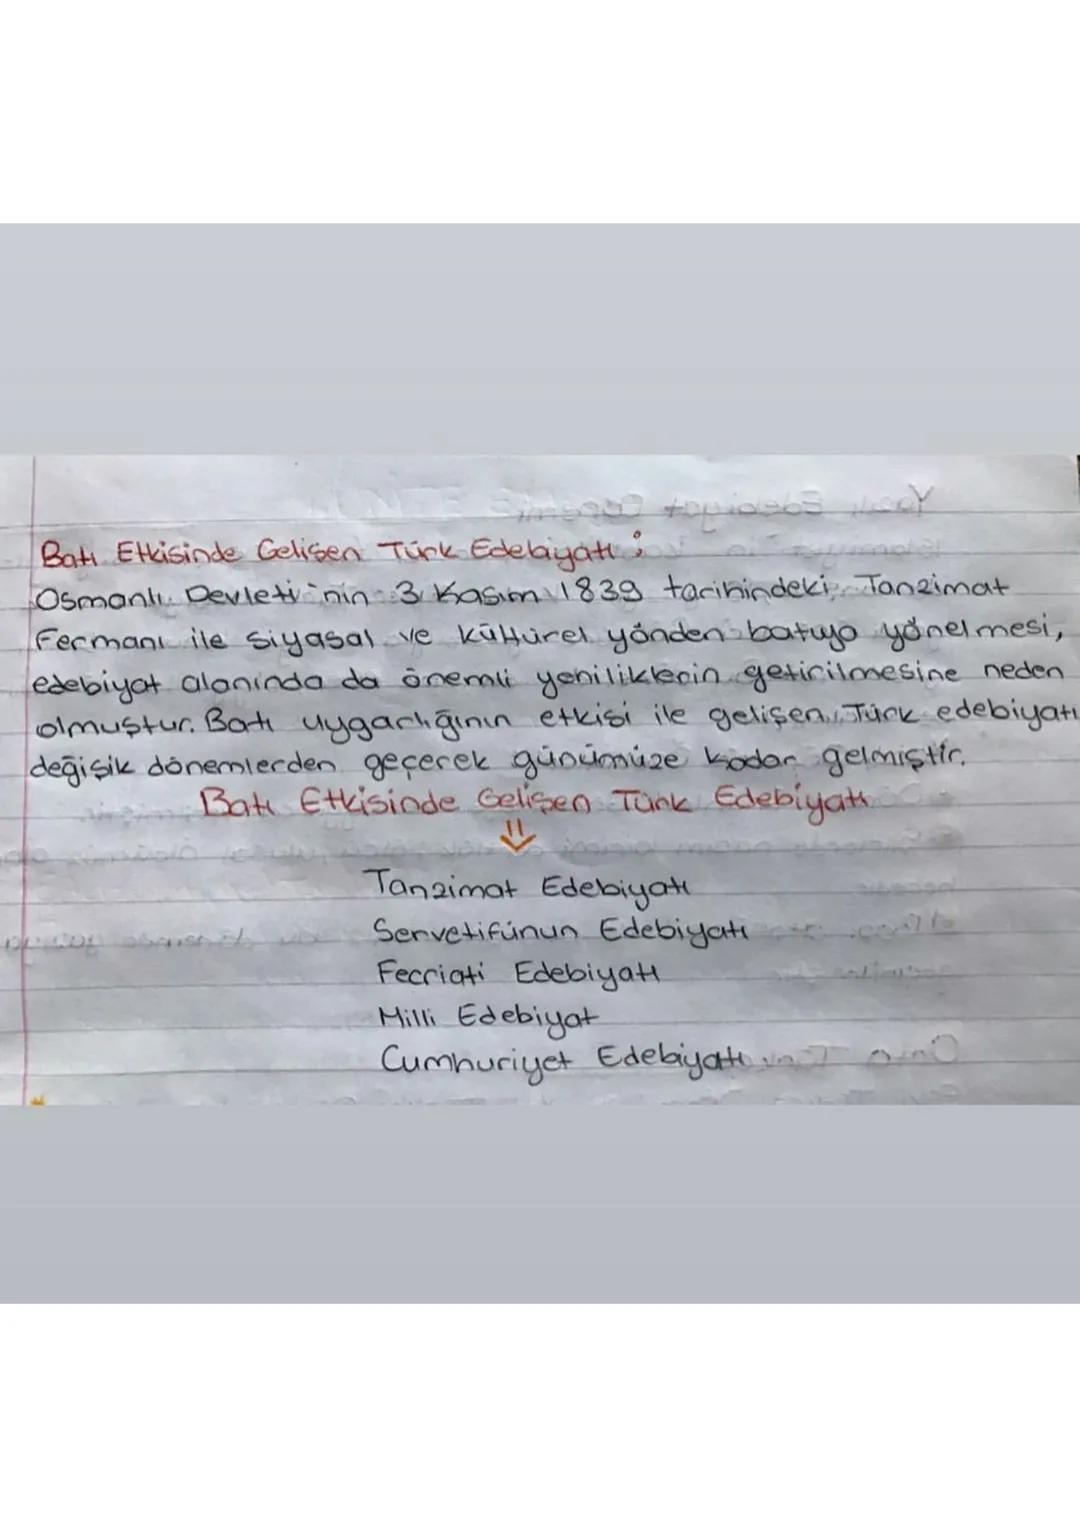 Batı Etkisinde Gelişen Türk Edebiyatı :
Osmanlı Devleti'nin 3 Kasım 1839 tarihindeki Tanzimat
Fermanı ile siyasal ve kültürel yönden batıya yönelmesi,
edebiyat alanında da önemli yeniliklerin getirilmesine neden
olmuştur. Batı uygarlığının etkisi ile gelişen Türk edebiyatı
değişik dönemlerden geçerek günümüze kadar gelmiştir.
Batı Etkisinde Gelişen Türk Edebiyatı
Tanzimat Edebiyatı
Servetifünun Edebiyatı
Fecriati Edebiyatı
Milli Edebiyat
Cumhuriyet Edebiyatı